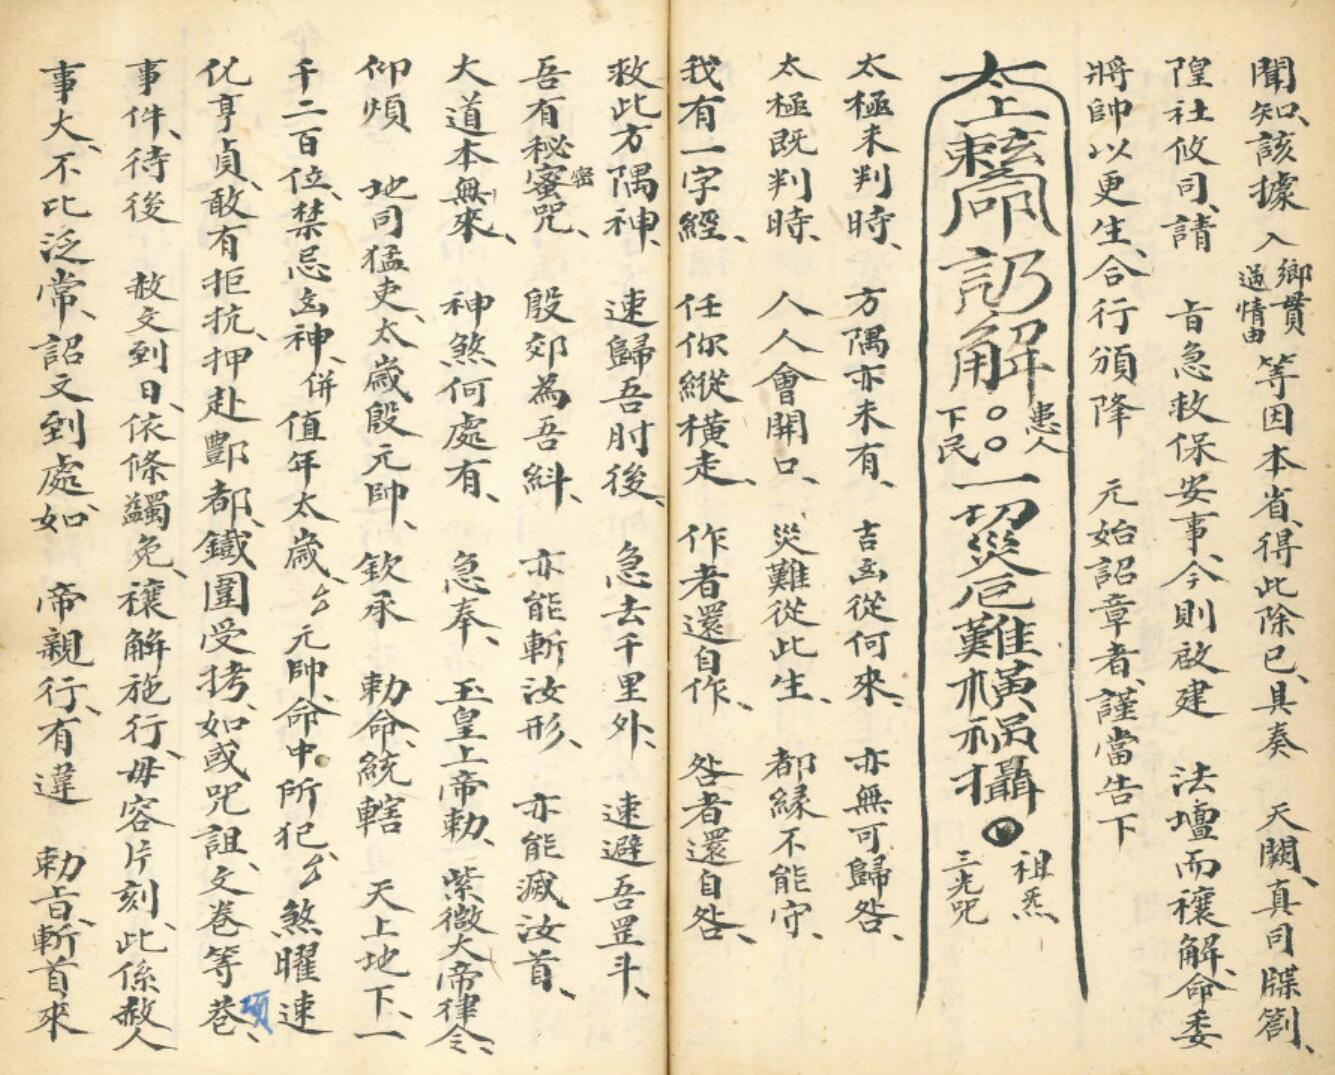 聞知、該據入鄉貫過情由等因本省、得此除已、具奏 天闕、真司牒劄、
隍社攸司、請 旨急救保安事、今則啟建 法壇而禳解、命委
將帥以更生、合行頒降 元始詔章者、謹當告下
太上敕命 解○○患人下民一切災厄難橫禍攝 祖炁三光咒
太極未判時、方隅亦未有、吉凶從何來、亦無可歸咎、
太極既判時、人人會開口、災難從此生、都緣不能守、
我有一字經、任你縱橫走、作者還自作、咎者還自咎、
救此方隅神、速歸吾肘後、急去千里外、速避吾罡斗、
吾有秘蜜咒、密 殷郊為吾糾、亦能斬汝形、亦能滅汝首、
大道本無來、神煞何處有、急奉、玉皇上帝勅、紫微大帝律令、
仰煩 地司猛吏、太歲殷元帥、欽承 勅命、統轄 天上地下、一
千二百位、禁忌凶神、併值年太歲、 元帥、命中所犯、 煞曜速
化亨貞、敢有拒抗、押赴酆都、鐵圍受拷、如或咒詛、文卷等卷、項
事件、待後 赦文到日、依條蠲免、禳解施行、毋容片刻、此係赦人
事大、不比泛常、詔文到處、如 帝親行、有違 勅旨、斬首來